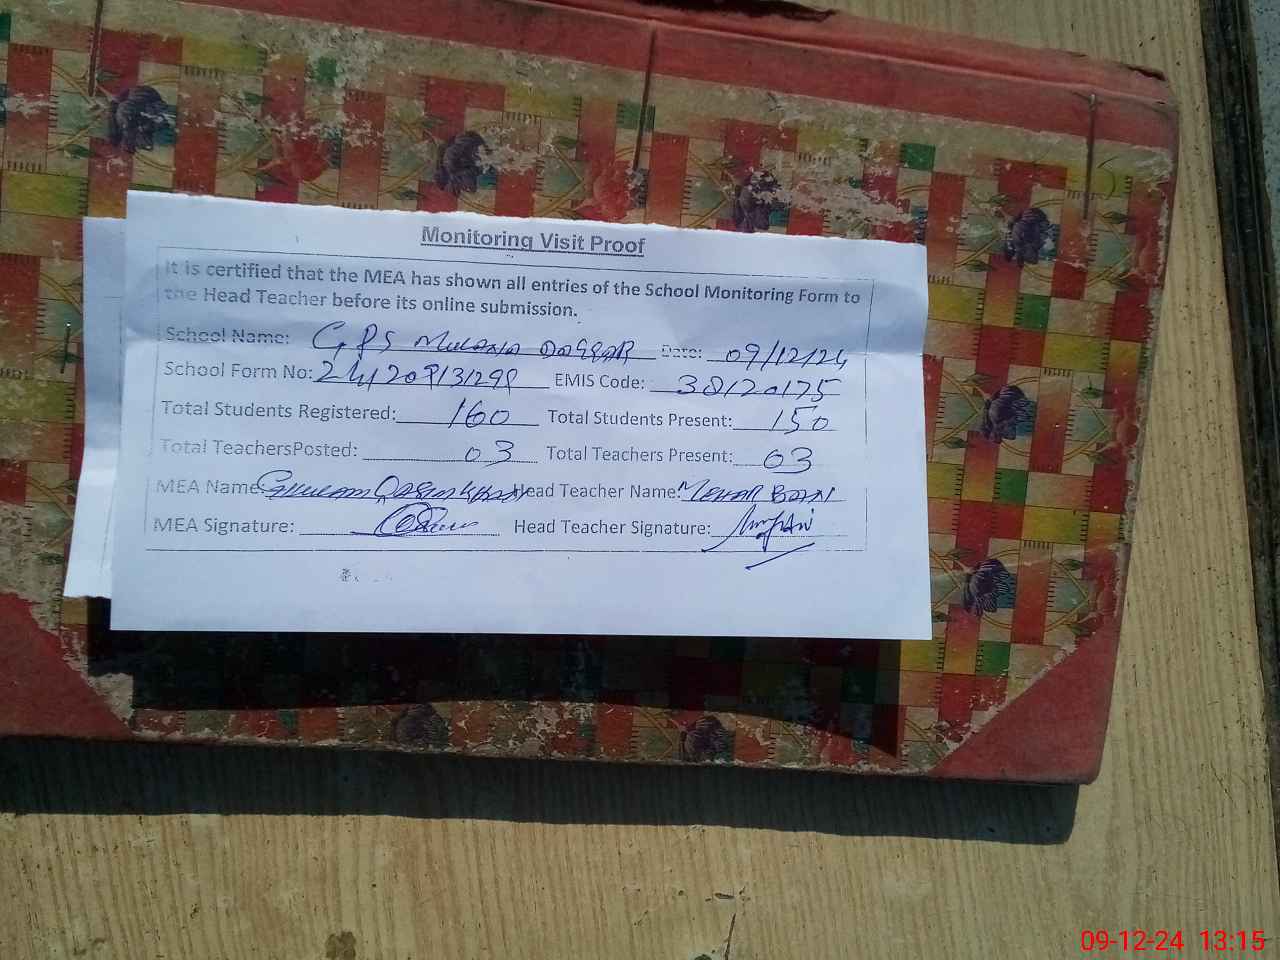 Monitoring Visit Proof
It is certified that the MEA has shown all entries of the School Monitoring Form to
the Head Teacher before its online submission.
School Name: GPS MULANA DAGGAR Date: 09/12/24
School Form No: EMIS Code: 38120175
Total Students Registered: 160 Total Students Present: 150
Total TeachersPosted: 03 Total Teachers Present: 03
MEA Name: Ghulam Qasim Khan Head Teacher Name: MEHAR
MEA Signature: Head Teacher Signature:
09-12-24 13:15